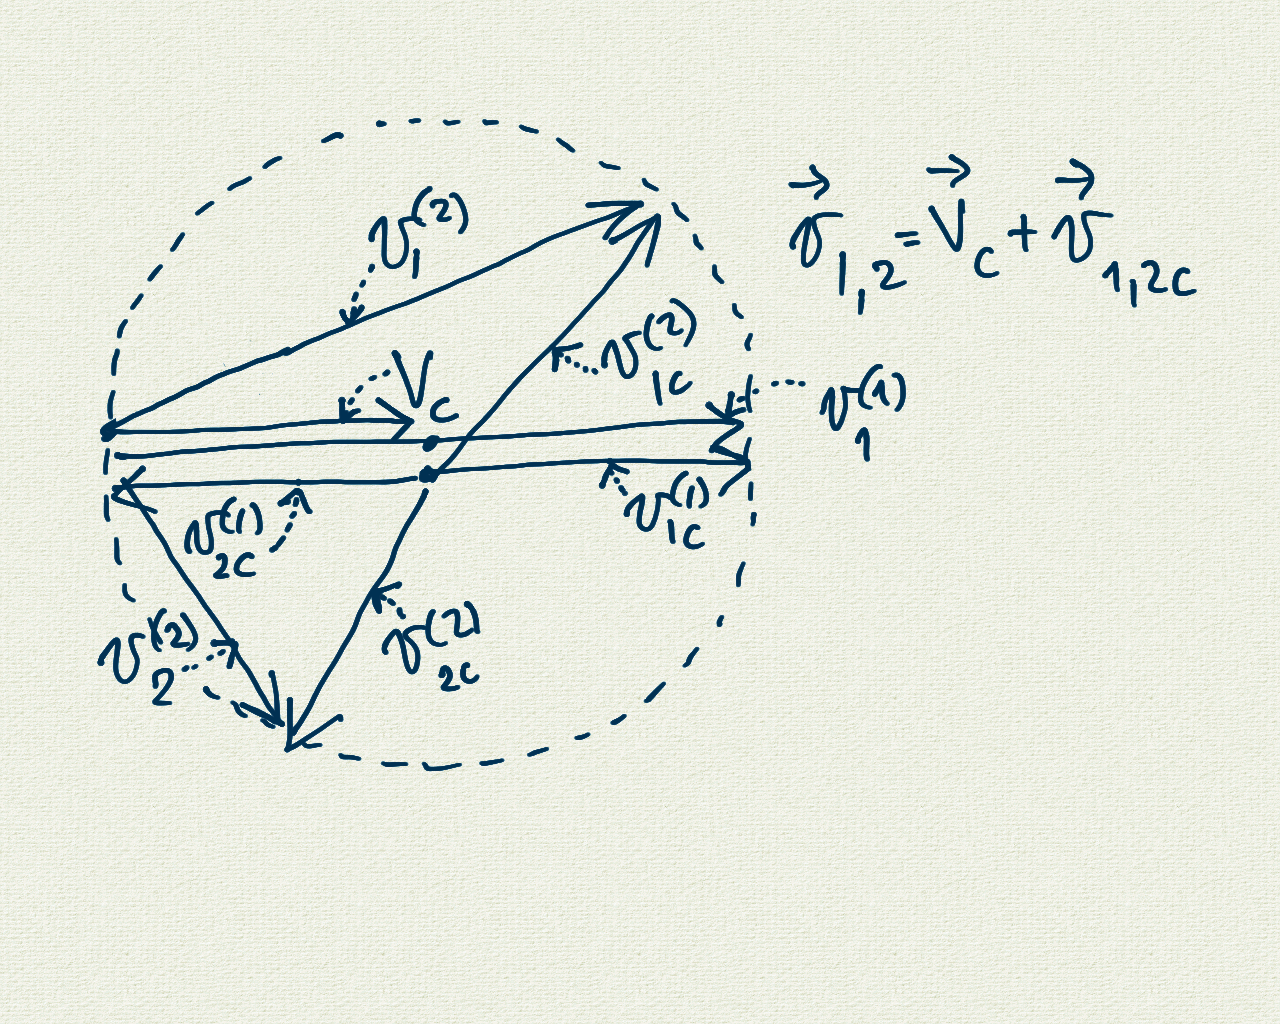 v₁⁽²⁾
v⃗₁,₂ = V⃗_C + v⃗₁,₂C
v₁C⁽²⁾
V_C
v₁⁽¹⁾
v₂C⁽¹⁾
v₁C⁽¹⁾
v₂⁽²⁾
v₂C⁽²⁾